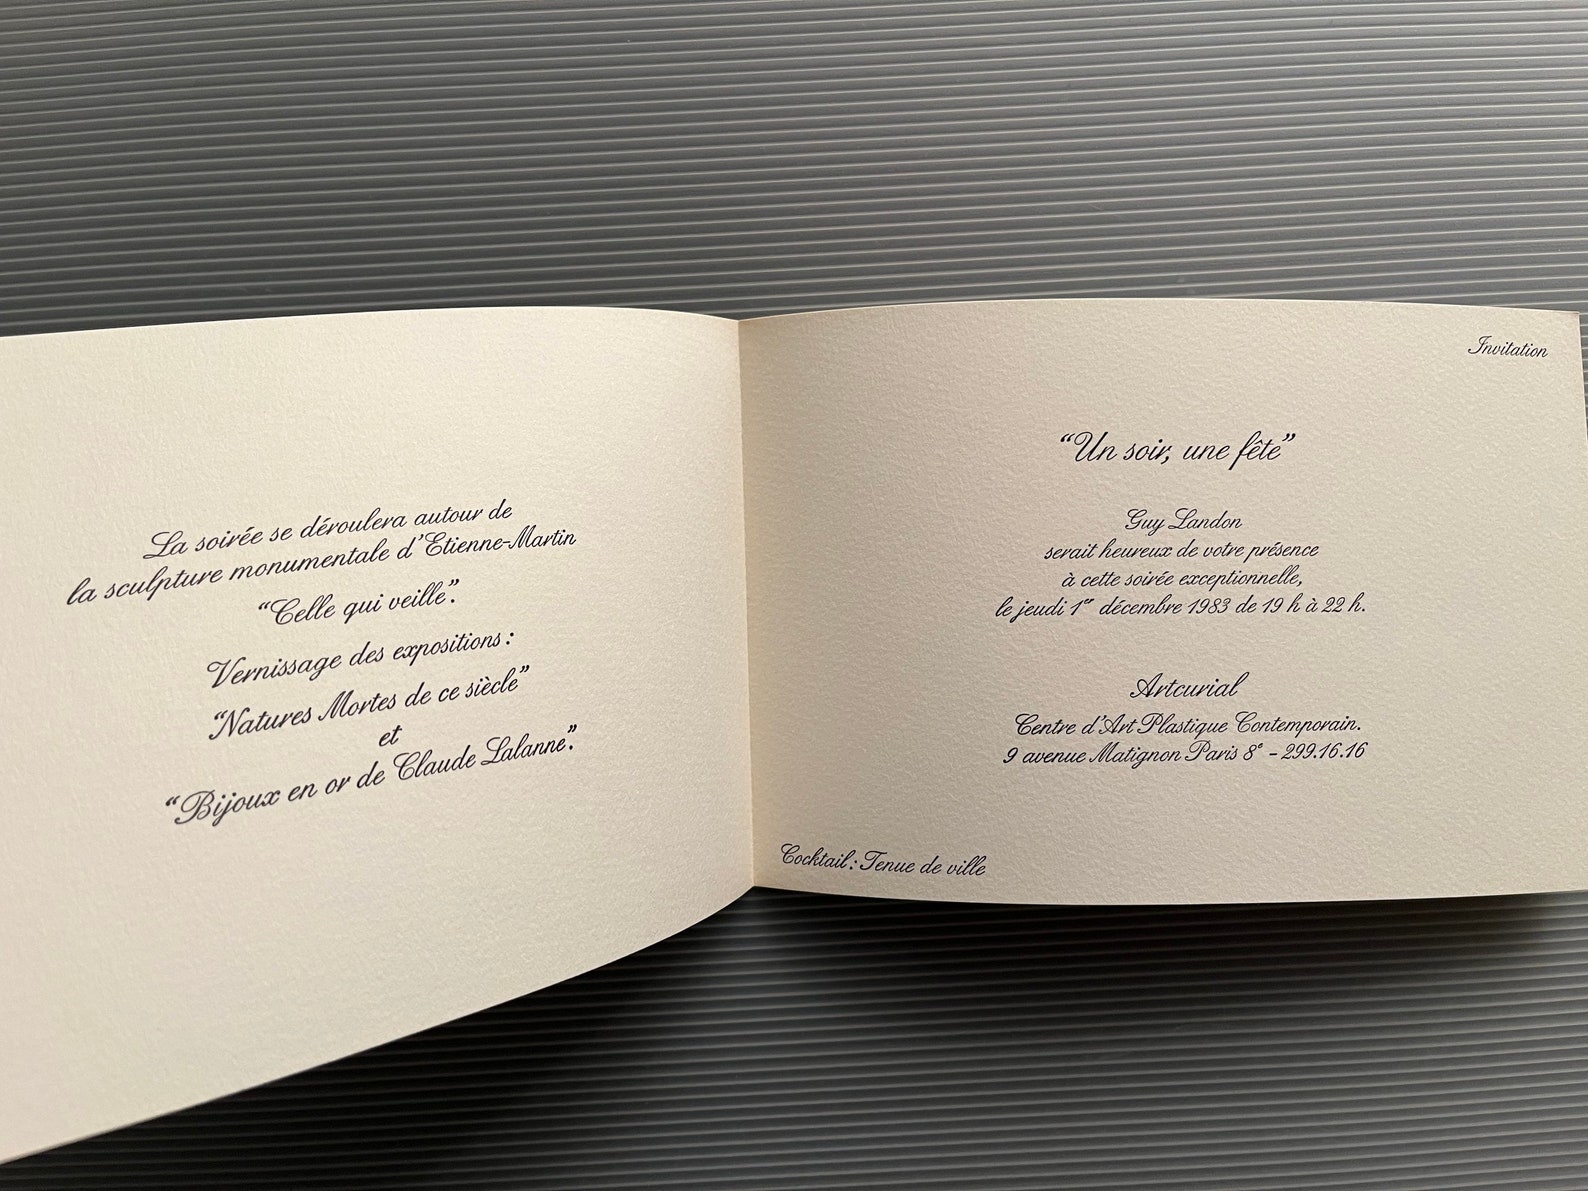 La soirée se déroulera autour de
la sculpture monumentale d'Etienne-Martin
“Celle qui veille”.
Vernissage des expositions :
“Natures Mortes de ce siècle”
et
“Bijoux en or de Claude Lalanne”.
Invitation
“Un soir, une fête”
Guy Landon
serait heureux de votre présence
à cette soirée exceptionnelle,
le jeudi 1er décembre 1983 de 19 h à 22 h.
Artcurial
Centre d'Art Plastique Contemporain.
9 avenue Matignon Paris 8e - 299.16.16
Cocktail : Tenue de ville